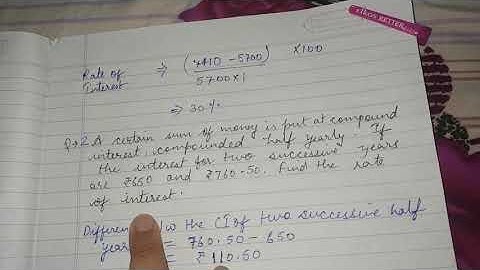 Rate of Interest ⇒ (7410 - 5700) / 5700×1 ×100
⇒ 30%
Q→2 A certain sum of money is put at compound
interest, compounded half yearly. If
the interest for two successive years
are ₹650 and ₹760.50. Find the rate
of interest.
the CI of two successive half
= 760.50 - 650
= ₹110.50